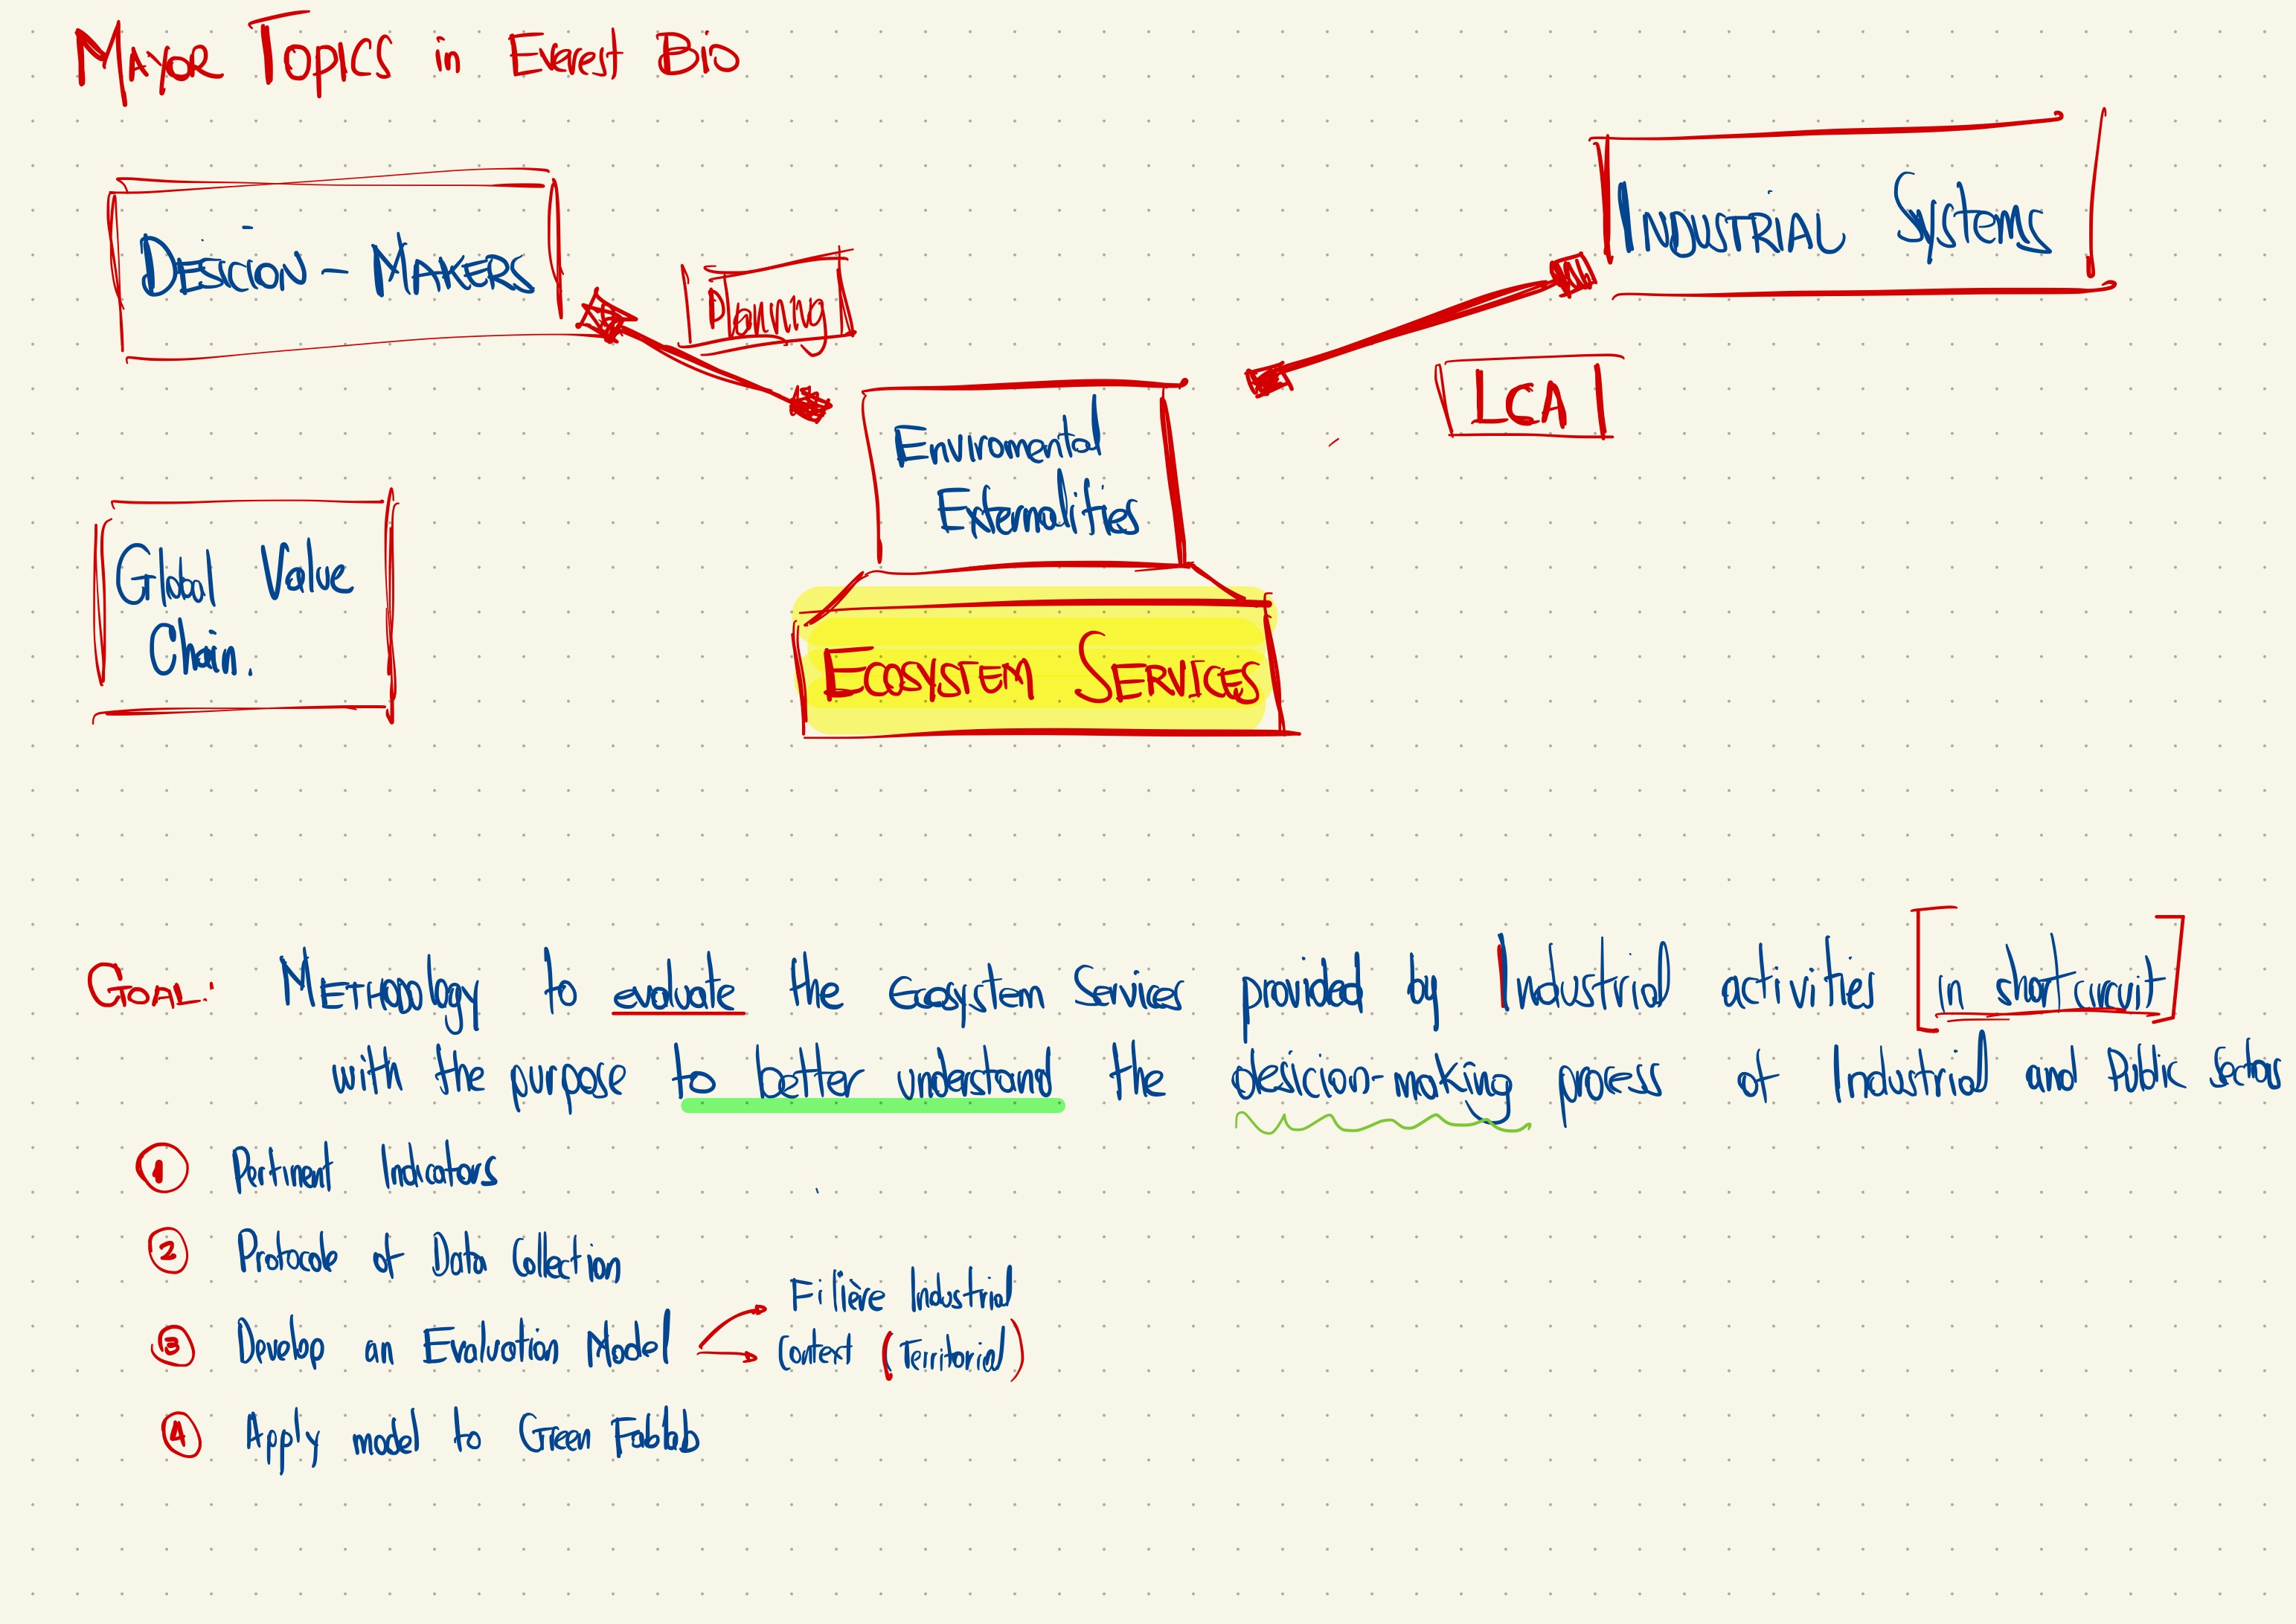 MAYOR TOPICS in Everest Bio
DESICION - MAKERS
Planning
INDUSTRIAL Systems
LCA
Enviromental
Externalities
Global Value
Chain.
ECOSYSTEM SERVICES
GOAL: METHODOlogy to evaluate the Ecosystem Services provided by Industrial activities [in short circuit]
with the purpose to better understand the desicion-making process of Industrial and Public Sectors
1 Pertinent Indicators
2 Protocole of Data Collection
3 Develop an Evaluation Model
Filière Industrial
Context (Territorial)
4 Apply model to Green Fablab